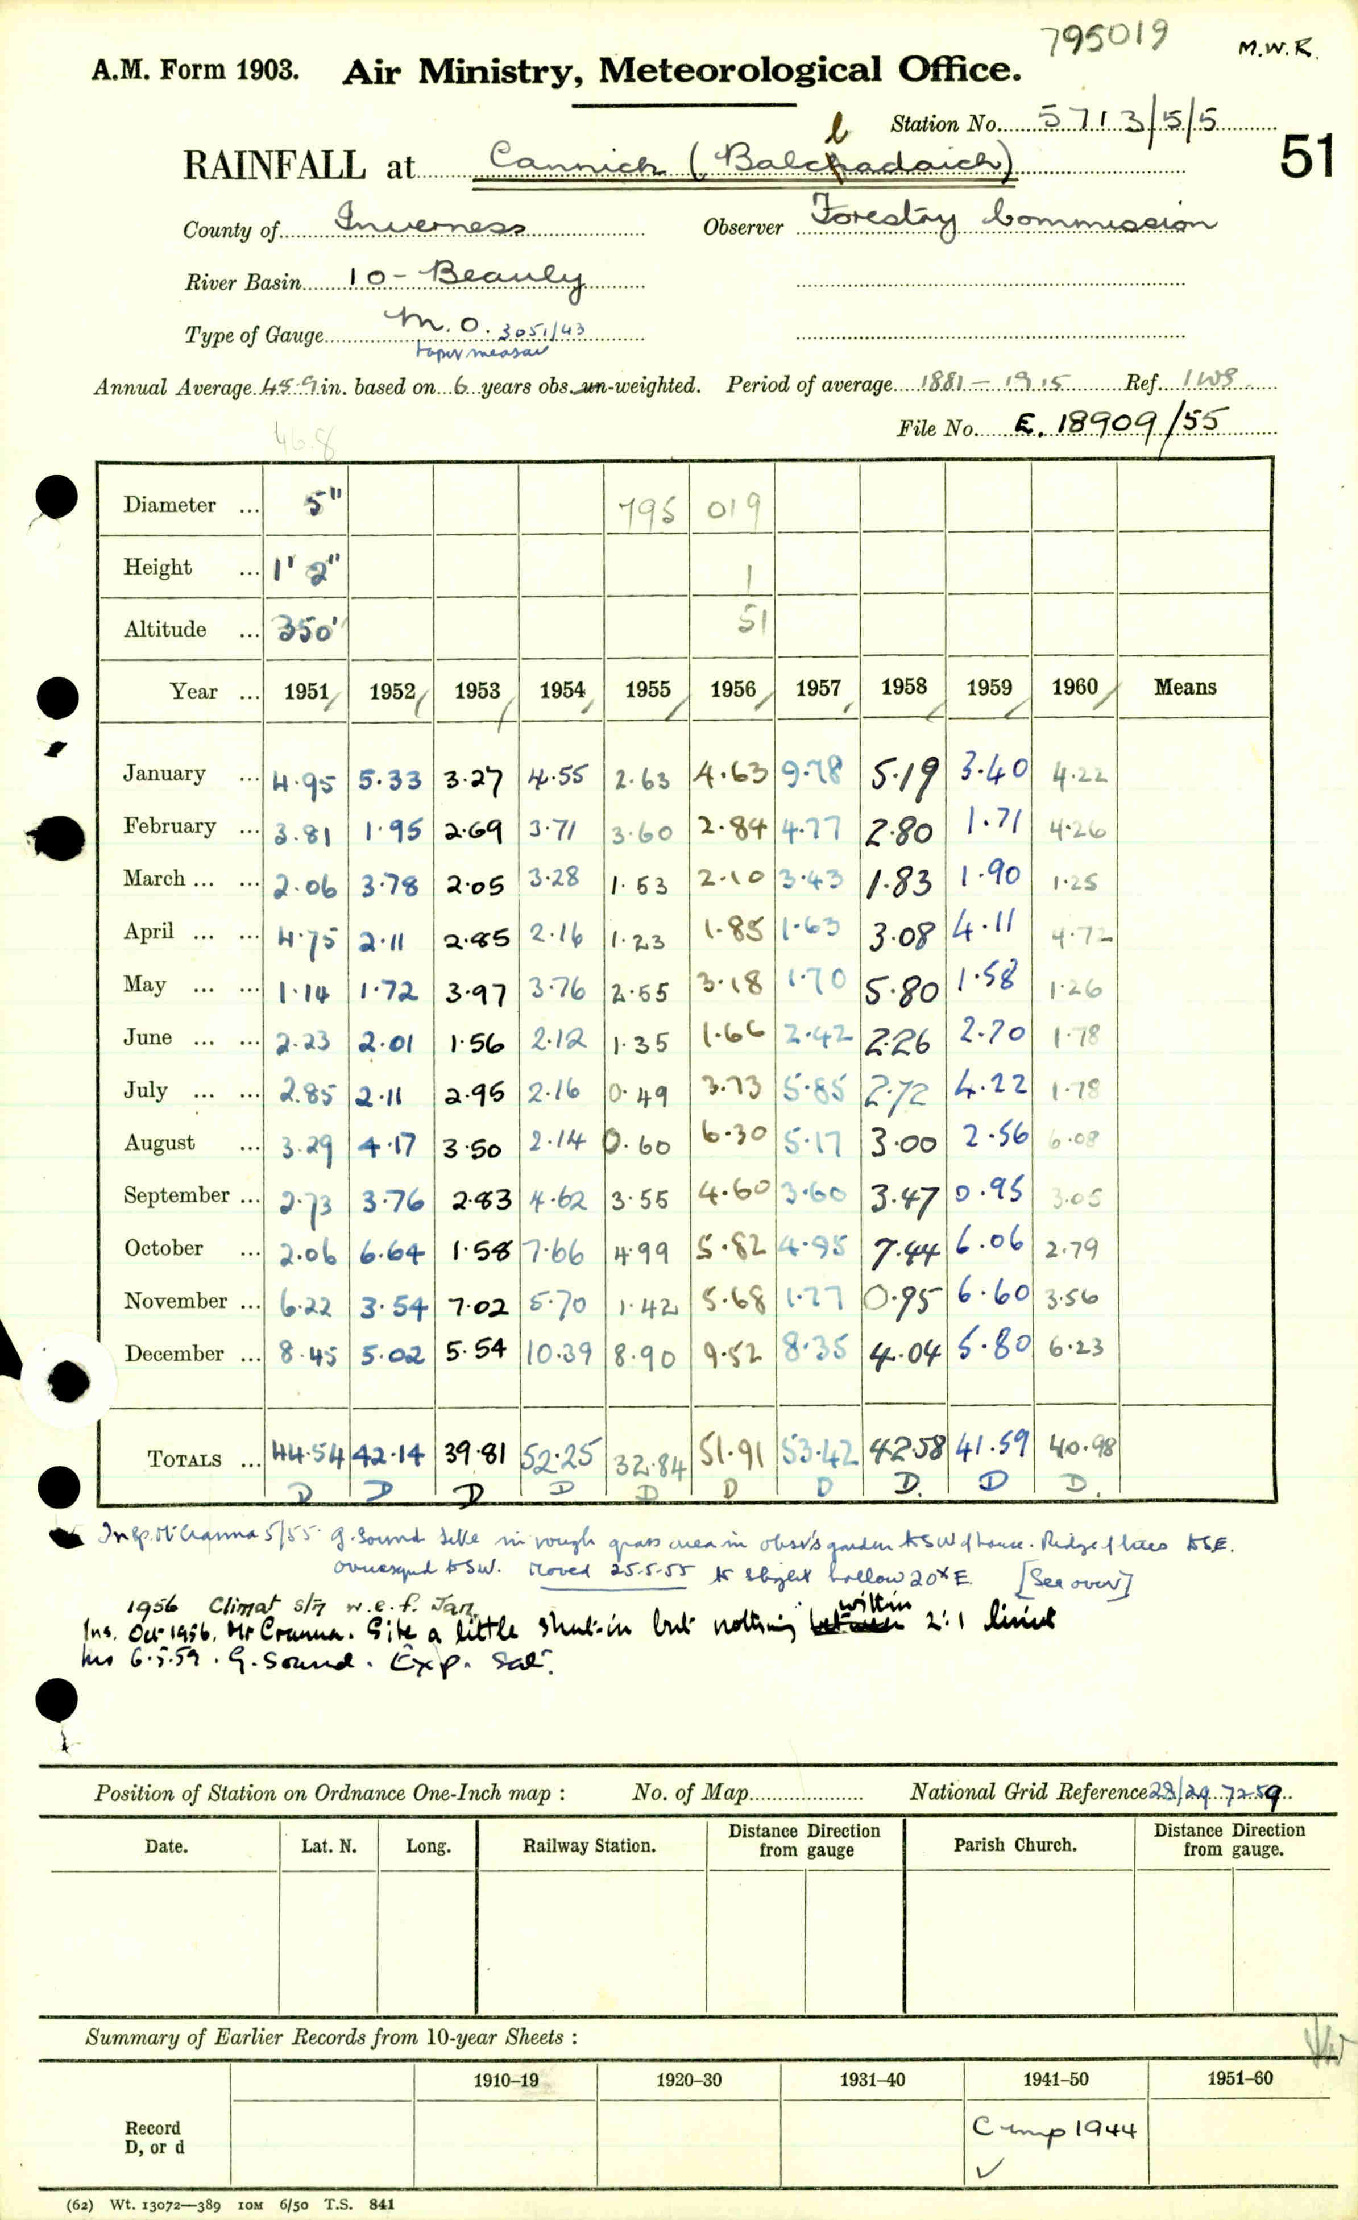 795019 M.W.R.
A.M. Form 1903. Air Ministry, Meteorological Office.
Station No. 5713/5/5
51
RAINFALL at Cannich (Balchadaich) b
County of Inverness Observer Forestry Commission
River Basin 10 - Beauly
Type of Gauge M.O. 3051/43
taper measure
Annual Average 45.9 in. based on 6 years obs. un-weighted. Period of average 1881-1915 Ref.
46.8
File No. E. 18909/55
Diameter ... 5" 795 019
Height ... 1' 2" 1
Altitude ... 350' 51
Year ... 1951 1952 1953 1954 1955 1956 1957 1958 1959 1960 Means
January ... 4.95 5.33 3.27 4.55 2.63 4.63 9.78 5.19 3.40 4.22
February ... 3.81 1.95 2.69 3.71 3.60 2.84 4.77 2.80 1.71 4.26
March ... ... 2.06 3.78 2.05 3.28 1.53 2.10 3.43 1.83 1.90 1.25
April ... ... 4.75 2.11 2.85 2.16 1.23 1.85 1.63 3.08 4.11 4.72
May ... ... 1.14 1.72 3.97 3.76 2.55 3.18 1.70 5.80 1.58 1.26
June ... ... 2.23 2.01 1.56 2.12 1.35 1.66 2.42 2.26 2.70 1.78
July ... ... 2.85 2.11 2.95 2.16 0.49 3.73 5.85 2.72 4.22 1.78
August ... 3.29 4.17 3.50 2.14 0.60 6.30 5.17 3.00 2.56 6.08
September ... 2.73 3.76 2.83 4.62 3.55 4.60 3.60 3.47 0.95 3.05
October ... 2.06 6.64 1.58 7.66 4.99 5.82 4.95 7.44 6.06 2.79
November ... 6.22 3.54 7.02 5.70 1.42 5.68 1.77 0.95 6.60 3.56
December ... 8.45 5.02 5.54 10.39 8.90 9.52 8.35 4.04 5.80 6.23
TOTALS ... 44.54 42.14 39.81 52.25 32.84 51.91 53.42 42.58 41.59 40.98
D D D D D D D D. D D.
Insp. McCranna 5/55 G. Sound. Site in rough grass area in obsr's garden to SW of house. Ridge of trees to SE.
to SW. Moved 25.5.55 to slight hollow 20x E. [See over]
1956 Climat s/n w.e.f. Jan.
Ins. Oct 1956. Mr Cranna. Site a little shut-in but nothing within 2:1 limit
Ins 6.5.59. G. Sound. Exp. Sat.
Position of Station on Ordnance One-Inch map : No. of Map National Grid Reference 28/29 72.59
Date. Lat. N. Long. Railway Station. Distance from Direction gauge Parish Church. Distance from Direction gauge.
Summary of Earlier Records from 10-year Sheets :
1910–19 1920–30 1931–40 1941–50 1951–60
Record
D, or d
Comp 1944
✓
(62) Wt. 13072—389 10M 6/50 T.S. 841